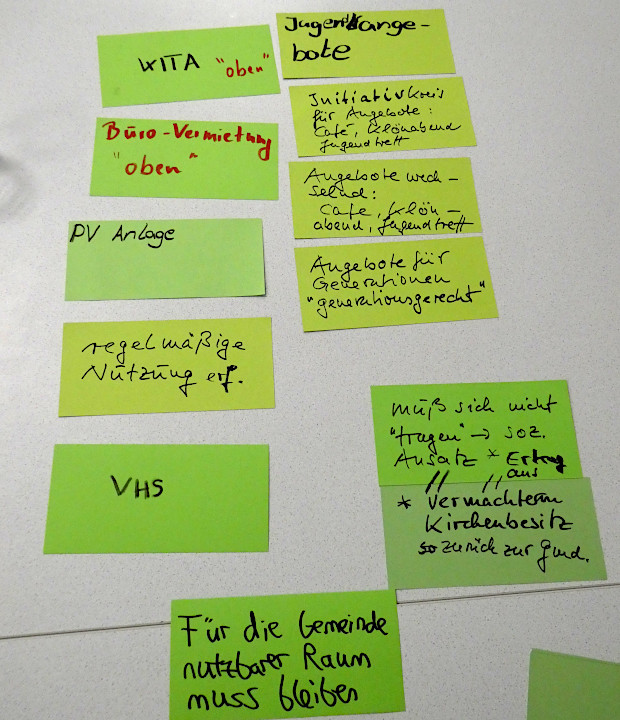 KITA "oben"
Büro-Vermietung
"oben"
PV Anlage
regelmäßige
Nutzung erf.
VHS
Jugendange-
bote
Initiativkreis
für Angebote:
Café, Klönabend
Jugendtreff
Angebote wech-
selnd:
Cafe, Klön-
abend, Jugendtreff
Angebote für
Generationen
"generationsgerecht"
muß sich nicht
"tragen" → soz.
Ansatz * Ertrag
aus
* Vermachtem
Kirchenbesitz
so zurück zur Gmd.
Für die Gemeinde
nutzbarer Raum
muss bleiben